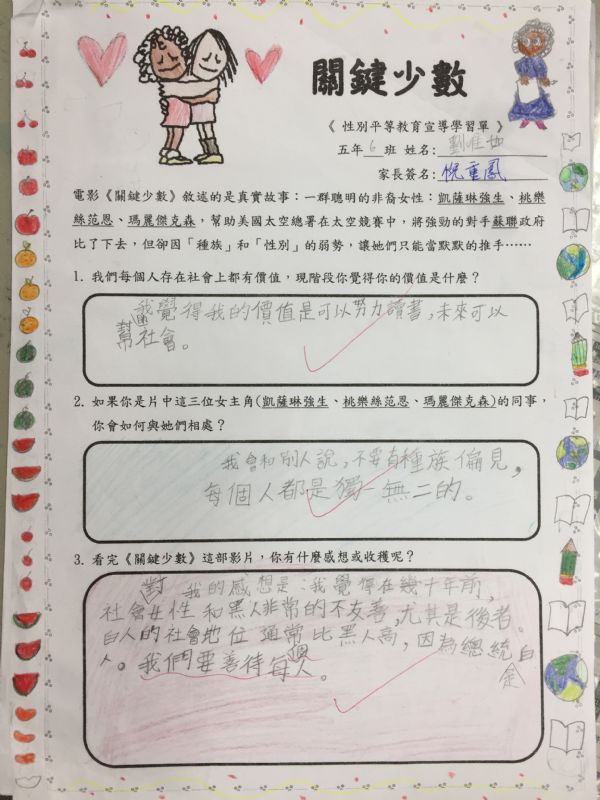 關鍵少數
《 性別平等教育宣導學習單 》
五年 6 班 姓名: 劉佳
家長簽名: 倪重鳳
電影《關鍵少數》敘述的是真實故事：一群聰明的非裔女性：凱薩琳強生、桃樂
絲范恩、瑪麗傑克森，幫助美國太空總署在太空競賽中，將強勁的對手蘇聯政府
比了下去，但卻因「種族」和「性別」的弱勢，讓她們只能當默默的推手……
1. 我們每個人存在社會上都有價值，現階段你覺得你的價值是什麼？
我覺得我的價值是可以努力讀書，未來可以
幫社會。
2. 如果你是片中這三位女主角(凱薩琳強生、桃樂絲范恩、瑪麗傑克森)的同事，
你會如何與她們相處？
我會和別人說，不要有種族偏見，
每個人都是獨一無二的。
3. 看完《關鍵少數》這部影片，你有什麼感想或收穫呢？
對 我的感想是：我覺得在幾十年前，
社會女性和黑人非常的不友善，尤其是後者。
白人的社會地位通常比黑人高，因為總統白
人。我們要善待每個人。